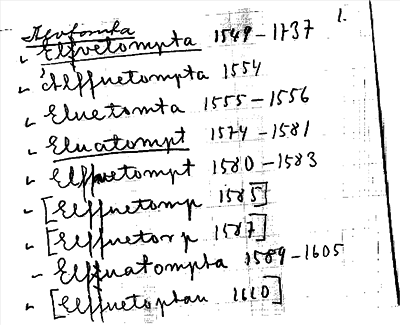 1.
Elfvetompta 1549-1737
Elffuetompta 1554
Eluetomta 1555-1556
Eluatompt 1574-1581
Elffuetompt 1580-1583
[Elffuetomp 1585]
[Elffuetorp 1587]
Elffuatompta 1589-1605
[Elffuetoptau 1610]